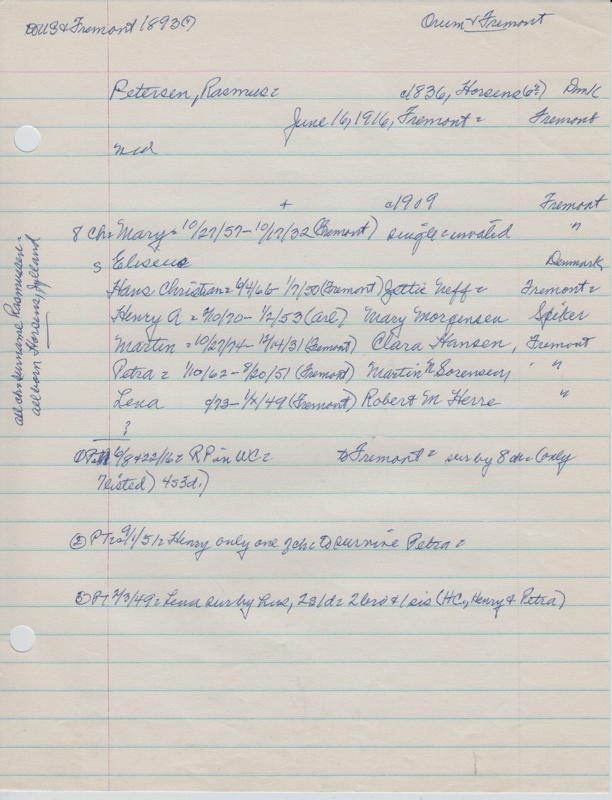 to US & Fremont 1893(?) Orum & Fremont
Petersen, Rasmus = c1836, Horsens(6?) Dmk
June 16, 1916, Fremont = Fremont
+ c1909 Fremont
8 ch = Mary = 10/27/57 - 10/17/32 (Fremont) single = invalid "
S Eliseus Denmark
Hans Christian = 6/4/66 - 1/7/50 (Fremont) Jettie Neff = Fremont =
Henry A = 2/10/70 - 1/2/53 (Carl) Mary Morgensen Spiker
Martin = 10/27/74 - 12/14/31 (Fremont) Clara Hansen, Fremont
Petra = 1/10/62 - 8/20/51 (Fremont) Martin N Sorensen "
Lena 9/73 - 1/ /49 (Fremont) Robert M Herre "
?
all ch = surname Rasmussen -
all born Horsens, Jylland
① 6/8 & 22/16 = RP in WC = to Fremont = sur by 8 ch = (only
7 listed) 4s 3d.)
② PT = 9/1/51 = Henry only one of ch = to survive Petra =
③ PT 2/3/49 = Lena sur by hus, 2s 1d = 2 bro & 1 sis (HC, Henry & Petra)